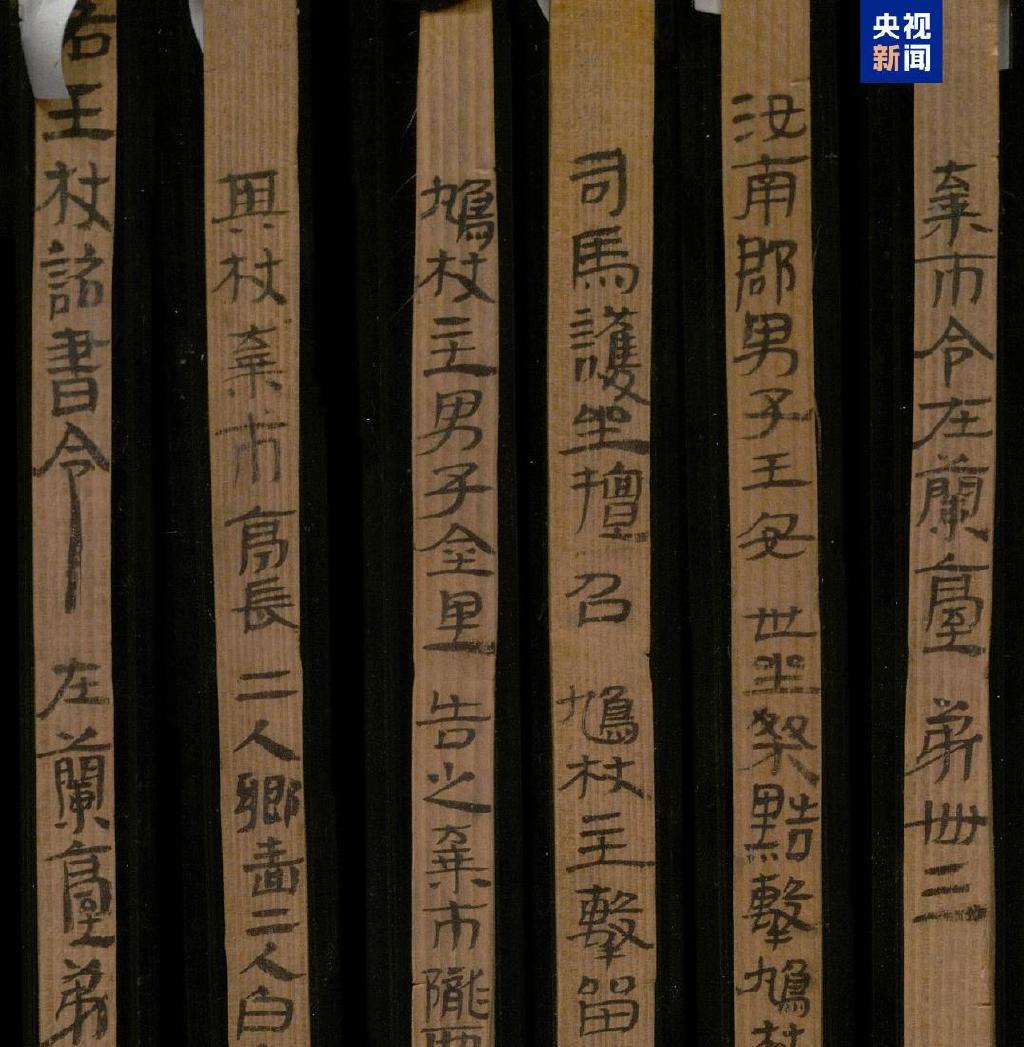 央视
新闻
棄市令在蘭臺弟卌三
汝南郡男子王安世坐桀黠擊鳩杖
司馬護坐擅召鳩杖主擊留
鳩杖主男子金里告之棄市隴西
與杖棄市亭長二人鄉嗇二人白
右王杖詔書令在蘭臺弟